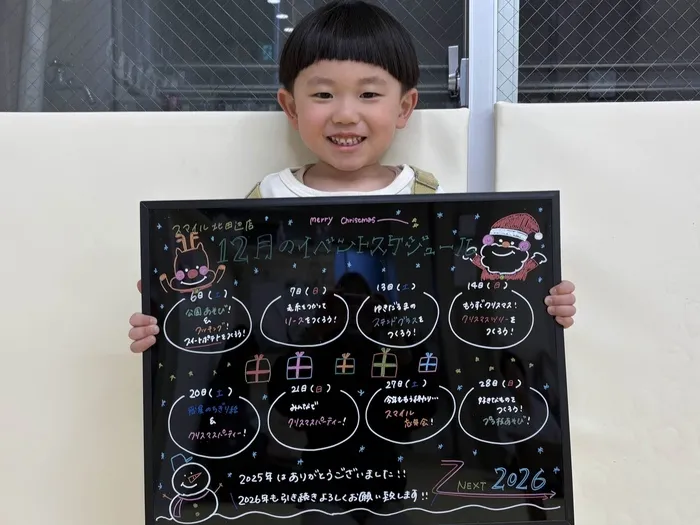 merry Christmas
スマイル北田辺店
12月のイベントスケジュール
6日(土)
公園あそび!
&
クッキング!
スイートポテトをつくろう!
7日(日)
毛糸をつかって
リースをつくろう!
13日(土)
ゆきだるまの
ステンドグラスを
つくろう!
14日(日)
もうすぐクリスマス!
クリスマスツリーを
つくろう!
20日(土)
のちぎり絵
&
クリスマスパーティー!
21日(日)
みんなで
クリスマスパーティー!
27日(土)
今年ももう終わり…
スマイル
忘年会!
28日(日)
好きなものを
つくろう!
プラ板あそび!
2025年はありがとうございました!!
2026年も引き続きよろしくお願い致します!!
NEXT 2026